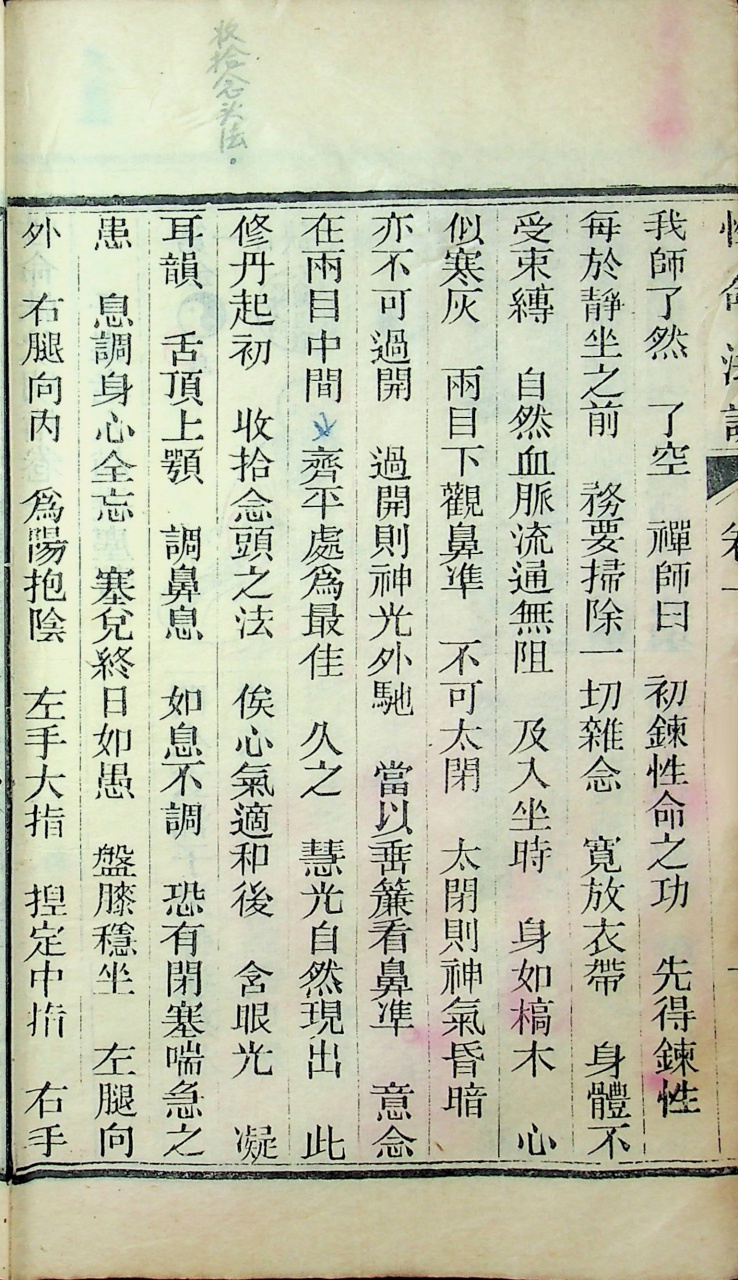 收拾念头法。
性命法訣 卷一
我師了然 了空 禪師曰 初鍊性命之功 先得鍊性
每於靜坐之前 務要掃除一切雜念 寬放衣帶 身體不
受束縛 自然血脈流通無阻 及入坐時 身如槁木 心
似寒灰 兩目下觀鼻準 不可太閉 太閉則神氣昏暗
亦不可過開 過開則神光外馳 當以垂簾看鼻準 意念
在兩目中間 齊平處爲最佳 久之 慧光自然現出 此
修丹起初 收拾念頭之法 俟心氣適和後 含眼光 凝
耳韻 舌頂上顎 調鼻息 如息不調 恐有閉塞喘急之
患 息調身心全忘 塞兌終日如愚 盤膝穩坐 左腿向
外 右腿向內 爲陽抱陰 左手大指 捏定中指 右手